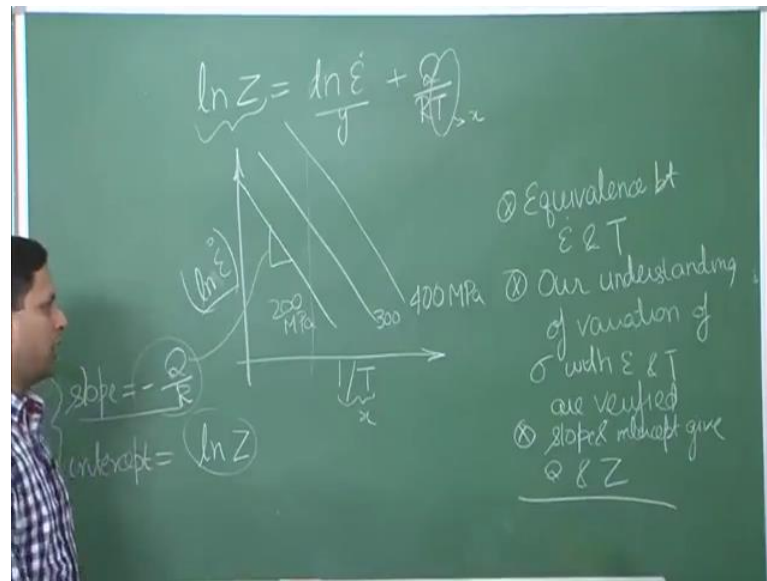 ln Z = ln ε̇ + Q/RT
y
x
ln ε̇
200
MPa
300
400 MPa
1/T
x
slope = - Q/R
intercept = ln Z
⊗ Equivalence bt
ε̇ & T
⊗ Our understanding
of variation of
σ with ε̇ & T
are verified
⊗ slope & intercept give
Q & Z